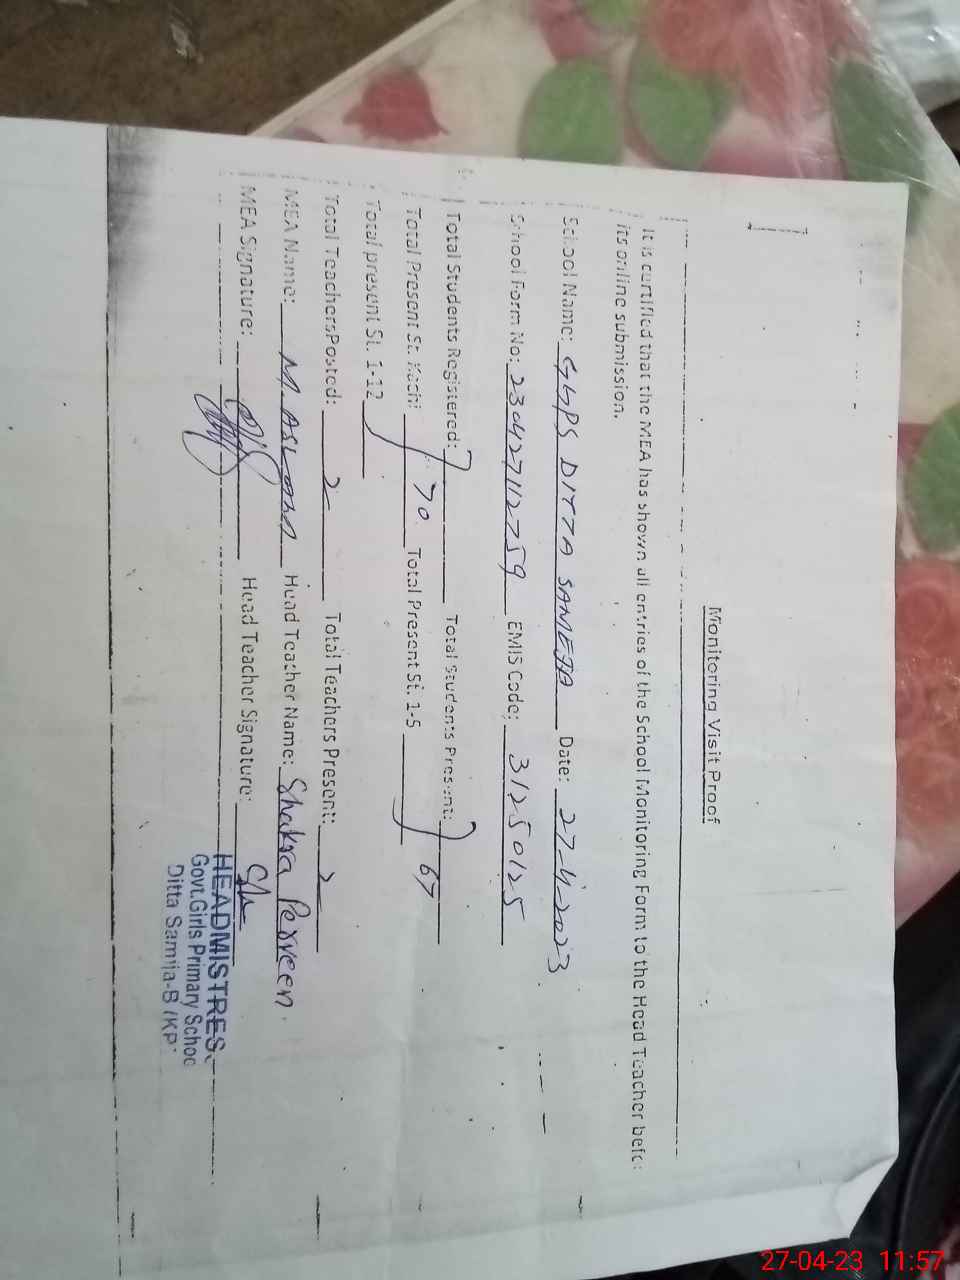 Monitoring Visit Proof
It is certified that the MEA has shown all entries of the School Monitoring Form to the Head Teacher befo
its online submission.
School Name: GGPS DITTA SAMEJA Date: 27-4-2023
School Form No: 230427112759 EMIS Code: 31250125
Total Students Registered: Total Students Present:
Total Present St. Kachi 70 Total Present St. 1-5 67
Total present St. 1-12
Total Teachers Posted: 2 Total Teachers Present: 2
MEA Name: M. ASLAM Head Teacher Name: Shakra Perveen
MEA Signature: Head Teacher Signature:
HEADMISTRES
Govt.Girls Primary Schoo
Ditta Samija-B (KP
27-04-23 11:57